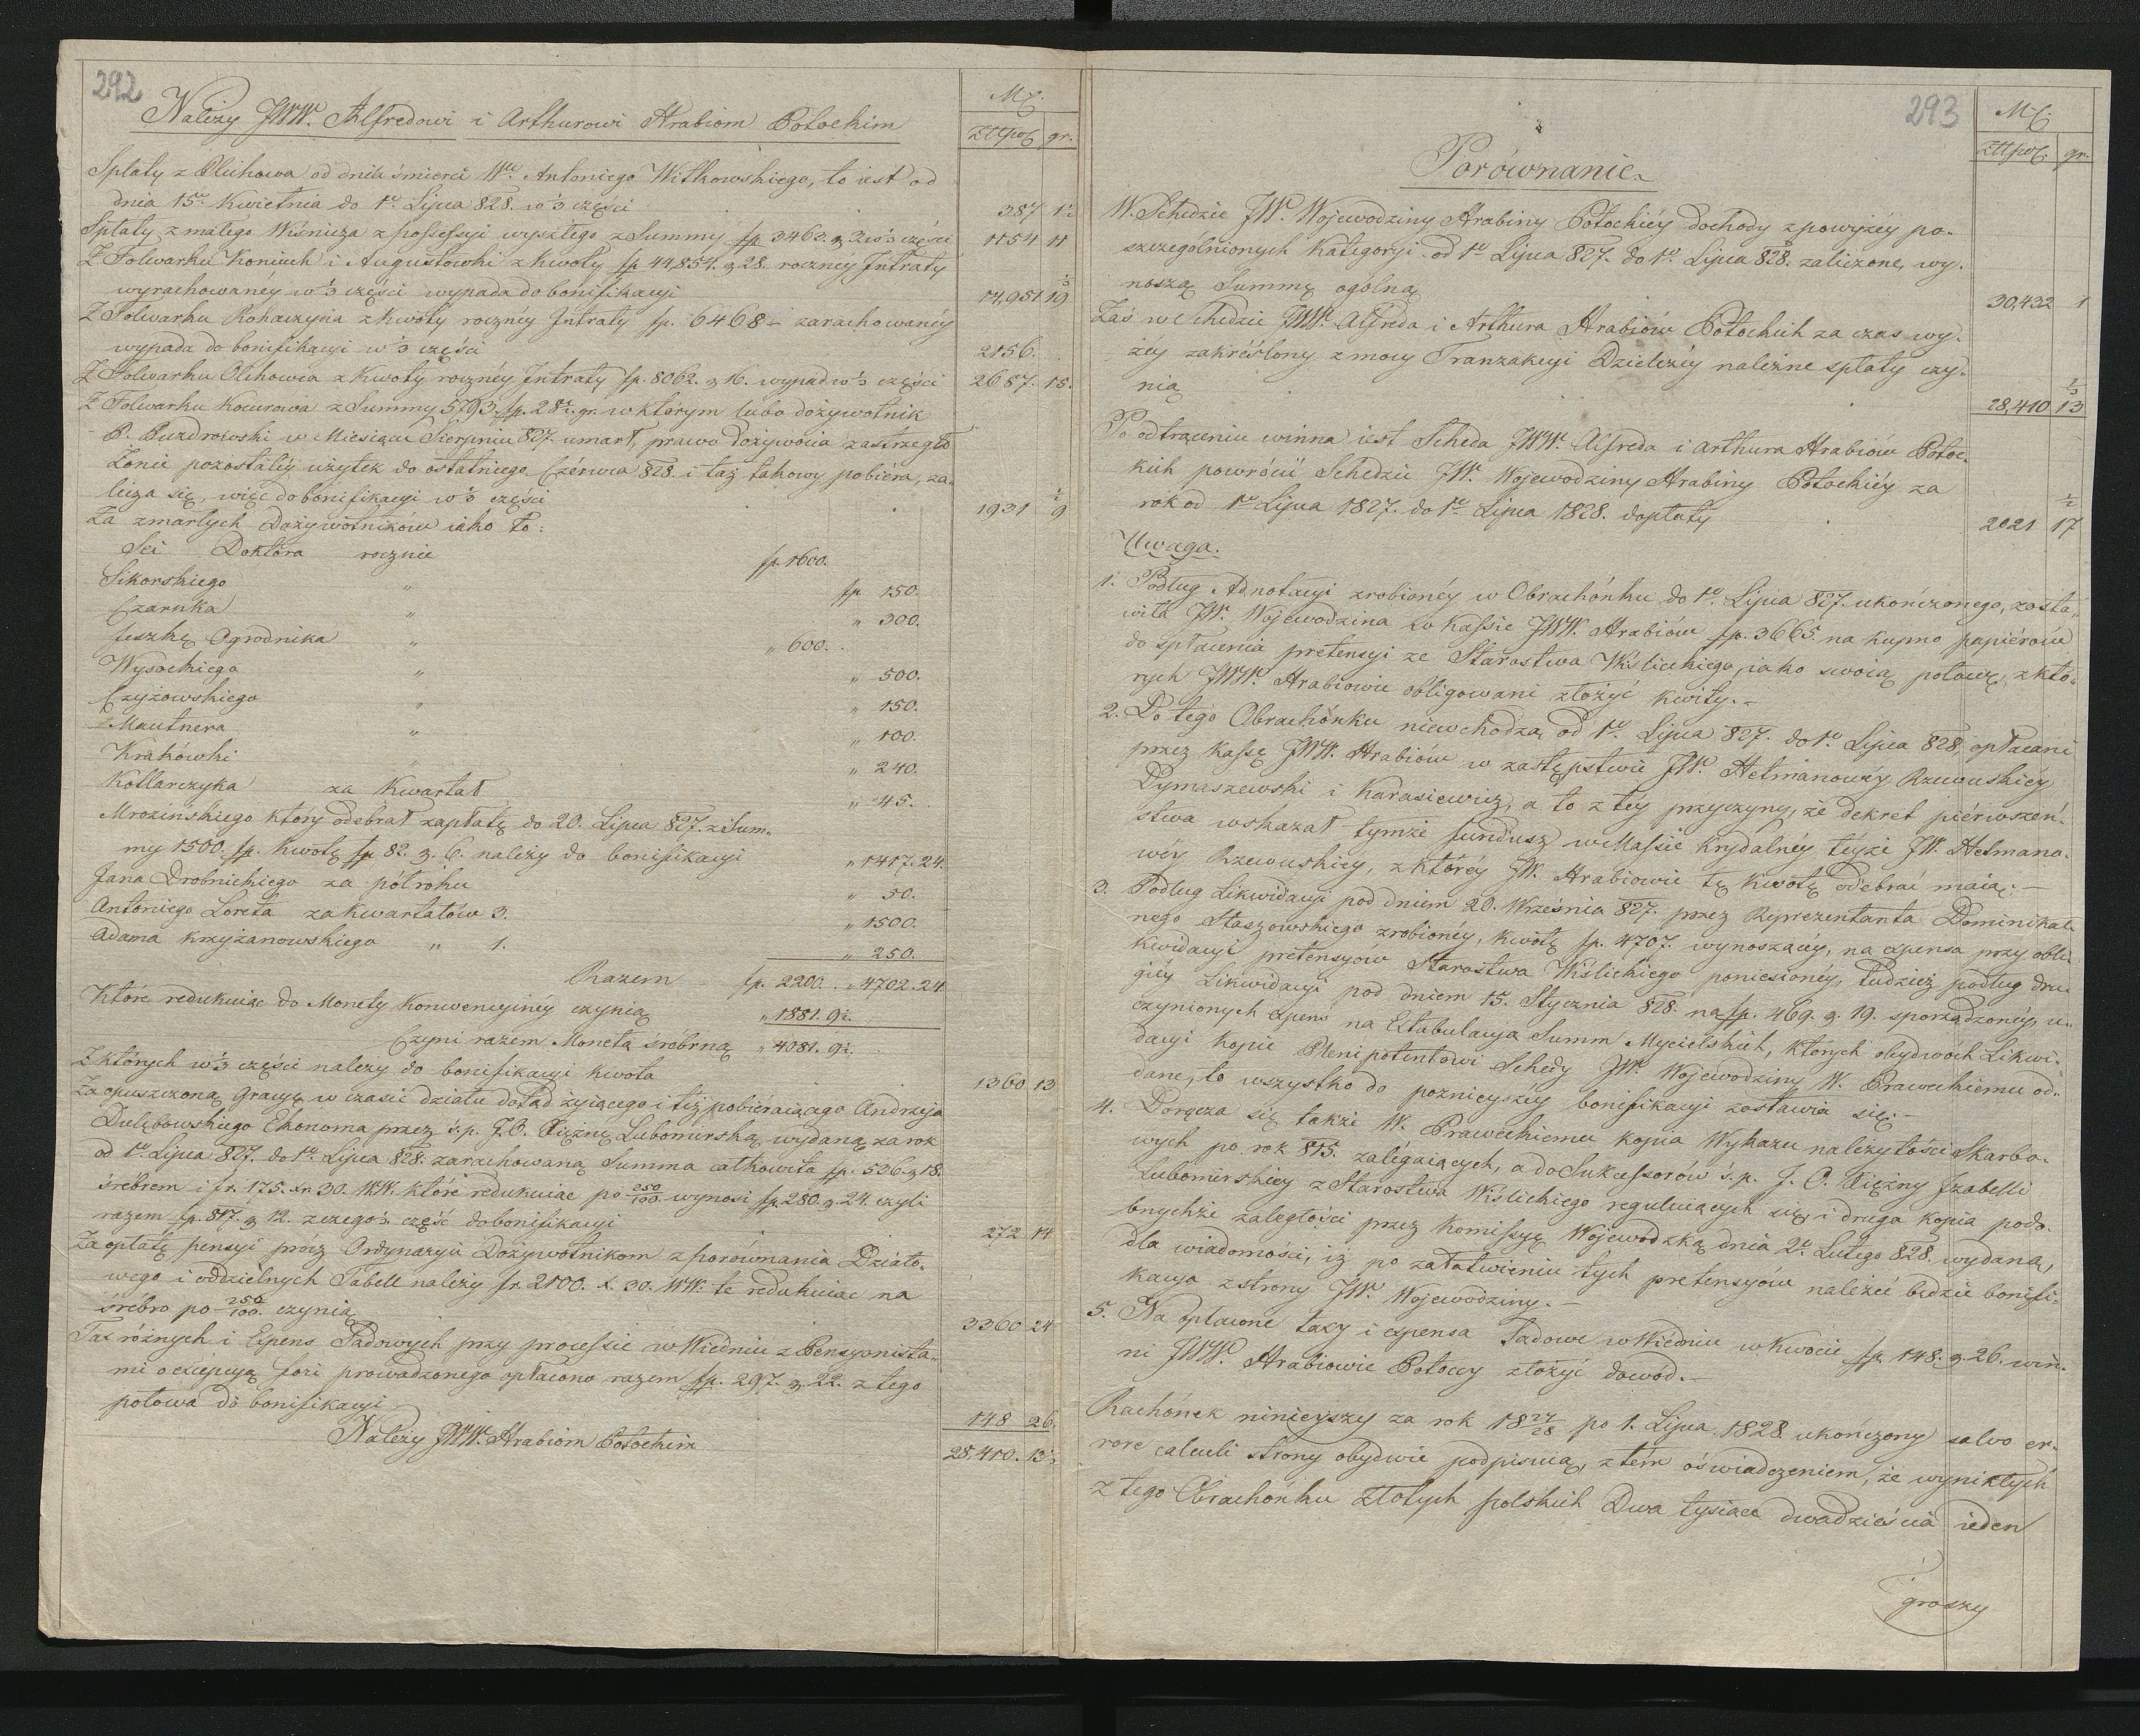 292
Należy JWW. Alfredowi i Arthurowi Hrabiom Potockim
M.C.
Złtpol. gr.
Spłaty z Bluchowa od dnia śmierci Wo Antoniego Witkowskiego, to iest od
dnia 15o Kwietnia do 1o Lipca 828. w ⅓ części 387 1½
Spłaty z małego Wiśnicza z possessyi wyszłego z Summy fp 3463. g 3 w ⅓ części 1154 11
Z Folwarku Koniuch i Augustówki z kwoty fp 44,854. g 28. roczney Intraty
wyrachowanéy w ⅓ części wypada do bonifikacyi 14,951 19⅓
Z Folwarku Rohaczyna z kwoty rocznéy Intraty fp. 6468 – zarachowanéy
wypada do bonifikacyi w ⅓ części 2156.
Z Folwarku Olchowca z Kwoty rocznéy Intraty fp. 8062. g 16. wypad w ⅓ części 2687. 15.
Z Folwarku Kocurowa z Summy 5793. fp. 28½. gr. w którym lubo dożywotnik
P. Puzdrowski w Miesiącu Sierpniu 827. umarł, prawo dożywocia zastrzegło
Żonie pozostałéy użytek do ostatniego Czérwca 828. i taż takowy pobiéra, za-
licza się, więc do bonifikacyi w ⅓ części 1931 9½
Za zmarłych Dożywotników iako to:
Sei Doktora rocznie fp. 1600.
Sikorskiego " fp 150.
Czarnka " " 300.
Jeszkę Ogrodnika " " 600.
Wysockiego " " 500.
Czyżowskiego " " 150.
Mautnera " " 100.
Krakówski " " 240.
Kotlarczyka za Kwartał " 45.
Mrozińskiego który odebrał zapłatę do 20. Lipca 827. z Sum-
my 1500. fp. Kwotę fp 82. g. 6. należy do bonifikacyi " 1417. 24.
Jana Drobnickiego za półroku " 50.
Antoniego Loreta za kwartałów 3. " 1500.
Adama Krzyżanowskiego " 1. " 250.
Razem fp. 2200. " 4702. 24.
Które redukuiąc do Monety Konwencyinéy czynią " 1881. 9½.
Czyni razem Monetą śrébrną " 4081. 9½.
Z których w ⅓ części należy do bonifikacyi kwota 1360 13
Za opuszczoną Gracyę w czasie działu dotąd żyiącego i też pobiéraiącago Andrzeja
Dulębowskiego Ekonoma przez ś. p. J. O. Xiężnę Lubomirską wydaną za rok
od 1o Lipca 827. do 1o Lipca 828. zarachowaną Summa całkowita fp. 526. g 18.
śrébrem i fr. 175. xr 30. WW. które redukuiąc po 250/100. wynosi fp. 280. g. 24. czyli
razem fp. 817. g 12. z czego ⅓ część do bonifikacyi 272 14
Za opłatę pensyi prócz Ordynaryi Dożywotnikom z porównania Działo-
wego i oddzielnych Tabell należy fr. 2100. x. 30. WW. te redukuiąc na
śrébro po 250/100. czynią 3360 24
Tax różnych i Expens Sądowych przy processie w Wiedniu z Pensyonista-
mi o excepcyą fori prowadzonego opłacono razem fp. 297. g. 22. z tego
połowa do bonifikacyi 148 26.
Należy JWW. Hrabiom Potockim 28,410. 13⅓
293
M.C.
Złtpol. gr.
Porównanie
W. Schedzie JW. Wojewodziny Hrabiny Potockiéy dochody z powyżéy po-
szczególnionych Kategoryi od 1o Lipca 827. do 1o Lipca 828. zaliczone, wy-
noszą Summę ogólną 30,432 1
Zaś w Schedzie JWW. Alfreda i Arthura Hrabiów Potockich za czas wy-
żéy zakréślony z mocy Tranzakcyi Dzielczéy należne spłaty czy-
nią 28,410 13⅓
Po odtrąceniu winna iest Scheda JWW. Alfreda i Arthura Hrabiów Potoc-
kich powrócić Schedzie JW. Wojewodziny Hrabiny Potockiéy za
rok od 1o Lipca 1827. do 1o Lipca 1828. dopłaty 2021 17½
Uwaga.
1. Podług Adnotacyi zrobionéy w Obrachónku do 1o Lipca 827. ukończonego, zosta-
wiła JW. Wojewodzina w Kassie JWW. Hrabiów fp. 3665. na kupno papiérów
do spłacenia pretensyi ze Starostwa Wiślickiego, iako swoią połowę, z któ-
rych JWW. Hrabiowie obligowani złożyć kwity. –
2. Do tego Obrachónku niewchodzą od 1o Lipca 827. do 1o Lipca 828. opłacani
przez Kassę JWW. Hrabiów w zastępstwie JW. Hetmanowéy Rzewuskiéy
Dymaszewski i Karasiewicz, a to z téy przyczyny, że dekret piérwszeń-
stwa wskazał tymże fundusz w Massie krydalnéy téyże JW. Hetmano-
wéy Rzewuskiéy, z któréy JW. Hrabiowie tę kwotę odebrać maią. –
3. Podług Likwidacyi pod dniem 20. Września 827. przez Reprezentanta Dominikal-
nego Staszowskiego zrobioney, kwotę fp. 4707. wynoszącéy, na expensa przy obli-
kwidacyi pretensyów Starostwa Wiślickiego poniesioney, tudzież podług dru-
giéy Likwidacyi pod dniem 15. Stycznia 828. na fp. 469. g. 19. sporządzonéy, u-
czynionych expens na Extabulacyą Summ Mycielskich, których obydwóch Likwi-
dacyi kopie Plenipotentowi Schedy JW. Wojewodziny W. Praweckiemu od-
dane, to wszystko do poźnieyszéy bonifikacyi zostawia się. –
4. Doręcza się także W. Praweckiemu kopia Wykazu należytości Skarbo-
wych po rok 815. zalégaiących, a do Sukcessorów ś. p. J. O. Xiężny Izabelli
Lubomirskiey z Starostwa Wiślickiego reguluiących się, i druga kopia podo-
bnychże zaległości przez Komissyę Wojewódzką dnia 2o Lutego 828. wydana,
dla wiadomości, iż po załatwieniu tych pretensyów należeć będzie bonifi-
kacya z strony JW. Wojewodziny. –
5. Na opłacone taxy i expensa Sądowe w Wiédniu w kwocie fp. 148. g. 26. win-
ni JWW. Hrabiowie Potoccy złożyć dowód. –
Rachónek ninieyszy za rok 1827/28 po 1. Lipca 1828. ukończony salvo er-
rore calculi strony obydwie podpisuią, z tém oświadczeniem, że wynikłych
z tego Obrachónku Złotych polskich Dwa tysiące dwadzieścia ieden
groszy